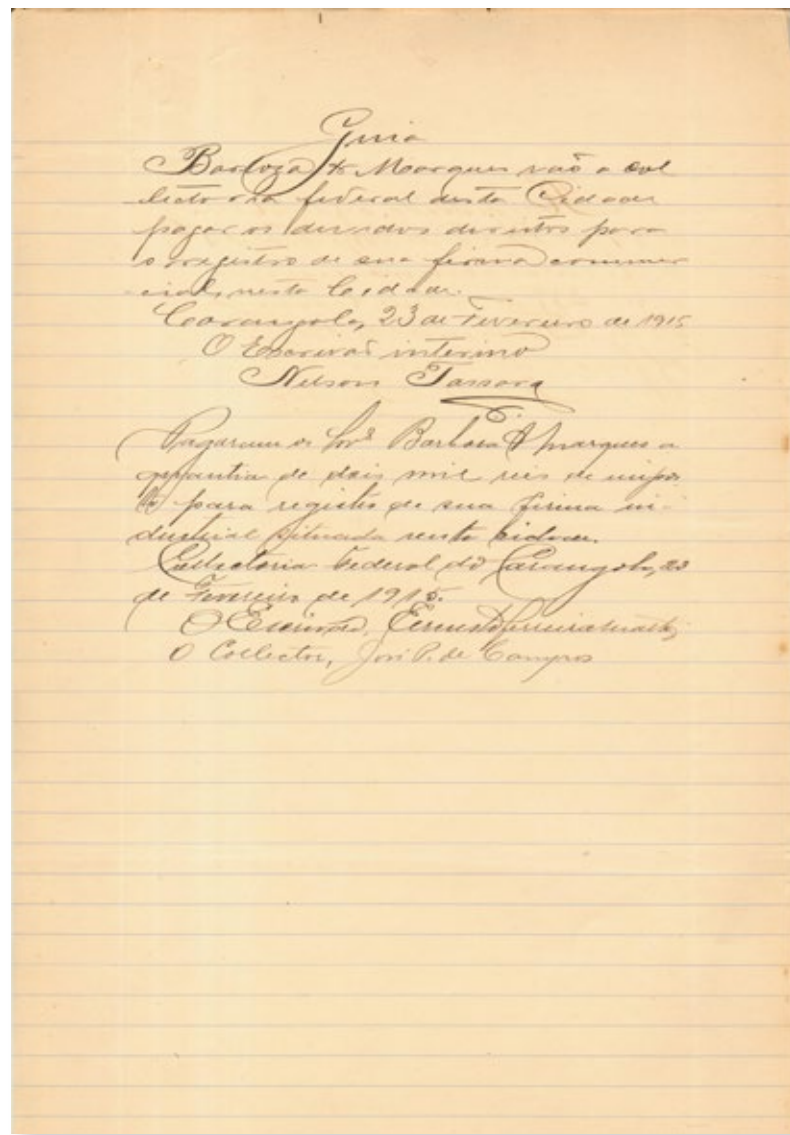 Guia
Barboza & Marques vão a col
lectoria federal desta Cidade
pagar os devidos direitos para
o registro de sua firma commer
cial, nesta Cidade.
Carangola, 23 de Fevereiro de 1915
O Escrivão interino
Nelson Tassara
Pagaram os Snrs Barbosa & Marques a
quantia de dois mil reis de impos
to para registro de sua firma in-
dustrial situada nesta cidade.
Collectoria Federal do Carangola, 23
de Fevereiro de 1915.
O Escrivão, Ernesto Ferreira
O Collector, José P. de Campos